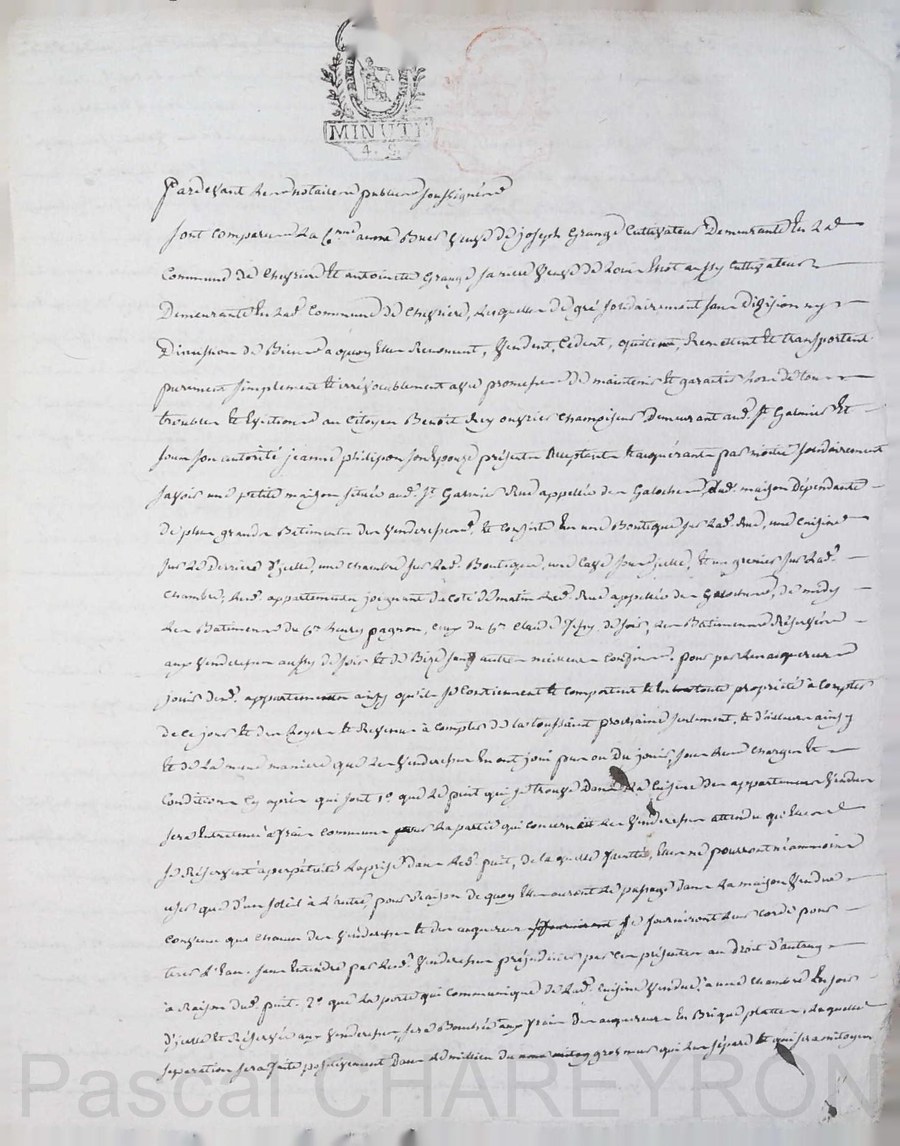 MINUTE
4. S
Pardevant les notaires publics soussignés
sont comparues la C.nne Bues veuve de joseph Grange Cultivateur Demeurante En lad.
Commune de Chevrieres et antoinette Grange sa niece veuve de Louis aussy cultivateur
Demeurante En lad. Commune de Chevrieres, lesquelles de gré solidairement sans division ny
Discussion de Biens a quoy Elles Renoncent, vendent, cedent, quittent, Remettent et transportent
purement simplement et irrevocablement avec promesse de maintenir et garantir hors de tous
troubles et Evictions au Citoyen Benoit Rey ouvrier Demeurant aud. St. Galmier Et
sous son autorité jeanne philipon son Epouze presents acceptants et acquerants par moitié solidairement
savoir une petite maison située aud. St. Galmier Rue appellée des Galoches, lad. maison Dépendante
de plus grands Batiments des venderesses, Et consiste En une Boutique sur lad. Rue, une cuisine
sur le derriere d'icelle, une chambre sur lad. Boutique, une cave sous icelle, Et un grenier sur lad.
chambre, lesd. appartements joignants du coté de matin lad. Rue appellée des Galoches, de midy
les Batiments du C.en pagnon, ceux du C.en Claude de soir, les Batiments Réservés
aux venderesses aussy de soir Et de Bize sauf autres meilleurs confins. pour par les acquereurs
jouir desd. appartements ainsy qu'ils se contiennent Et comportent Et En toute propriété à compter
de ce jour Et des Loyers Et Revenus à compter de la toussaint prochaine seulement, Et d'ailleurs ainsy
Et de la meme maniere que les venderesses En ont joui pu ou Du jouir, sous les charges Et
Conditions cy après qui sont 1°. que le puit qui se trouve Dans la cuisine des appartements vendus
sera Entretenu à frais communs pour la partie qui concernait les venderesses attendu qu'Elles
se Réservent à perpétuité la prise dans led. puit, de laquelle Elles ne pourront néanmoins
user que d'un soleil à l'autre, pour Raison de quoy Elles auront le passage dans la maison vendue
convenu que chacun des venderesses Et des acquereurs se fourniront leur corde pour
tirer l'eau. sans Entendre par lesd. venderesses préjudicier par ces présentes au Droit
à Raison dud. puit. 2°. que la porte qui communique de lad. cuisine vendue à une chambre En soir
d'icelle Et Réservée aux venderesses sera Bouchée aux frais des acquereurs En Brique platte, laquelle
separation sera faite positivement Dans le millieu du gros mur qui les sépare Et qui sera mitoyen
Pascal CHAREYRON